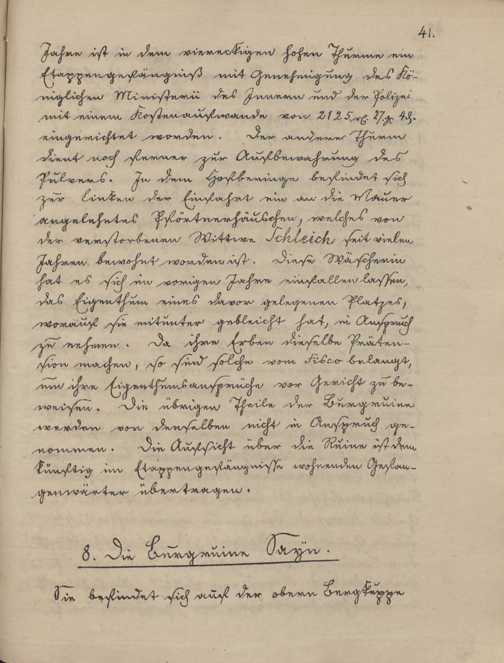 41.
Jahre ist in dem viereckigen hohen Thurme ein
Etappengefängniß mit Genehmigung des Kö-
niglichen Ministerii des Innern und der Polizei
mit einem Kostenaufwande von 2125 rℓ. 27 g. 4 d.
eingerichtet worden. Der andere Thurm
dient noch ferner zur Aufbewahrung des
Pulvers. In dem Hofberinge befindet sich
zur linken der Einfahrt ein an die Mauer
angelehntes Pförtnerhäuschen, welches von
der verstorbenen Wittwe Schleich seit vielen
Jahren bewohnt worden ist. Diese Wäscherin
hat es sich im vorigen Jahre einfallen lassen,
das Eigenthum eines davor gelegenen Platzes,
worauf sie mitunter gebleicht hat, in Anspruch
zu nehmen. Da ihre Erben dieselbe Präten-
sion machen, so sind solche vom Fisco belangt,
um ihre Eigenthumsansprüche vor Gericht zu be-
weisen. Die übrigen Theile der Burgruine
werden von denselben nicht in Anspruch ge-
nommen. Die Aufsicht über die Ruine ist dem
künftig im Etappengefängnisse wohnenden Gefan-
genwärter übertragen.
8. Die Burgruine Sayn.
Sie befindet sich auf der obern Bergkuppe